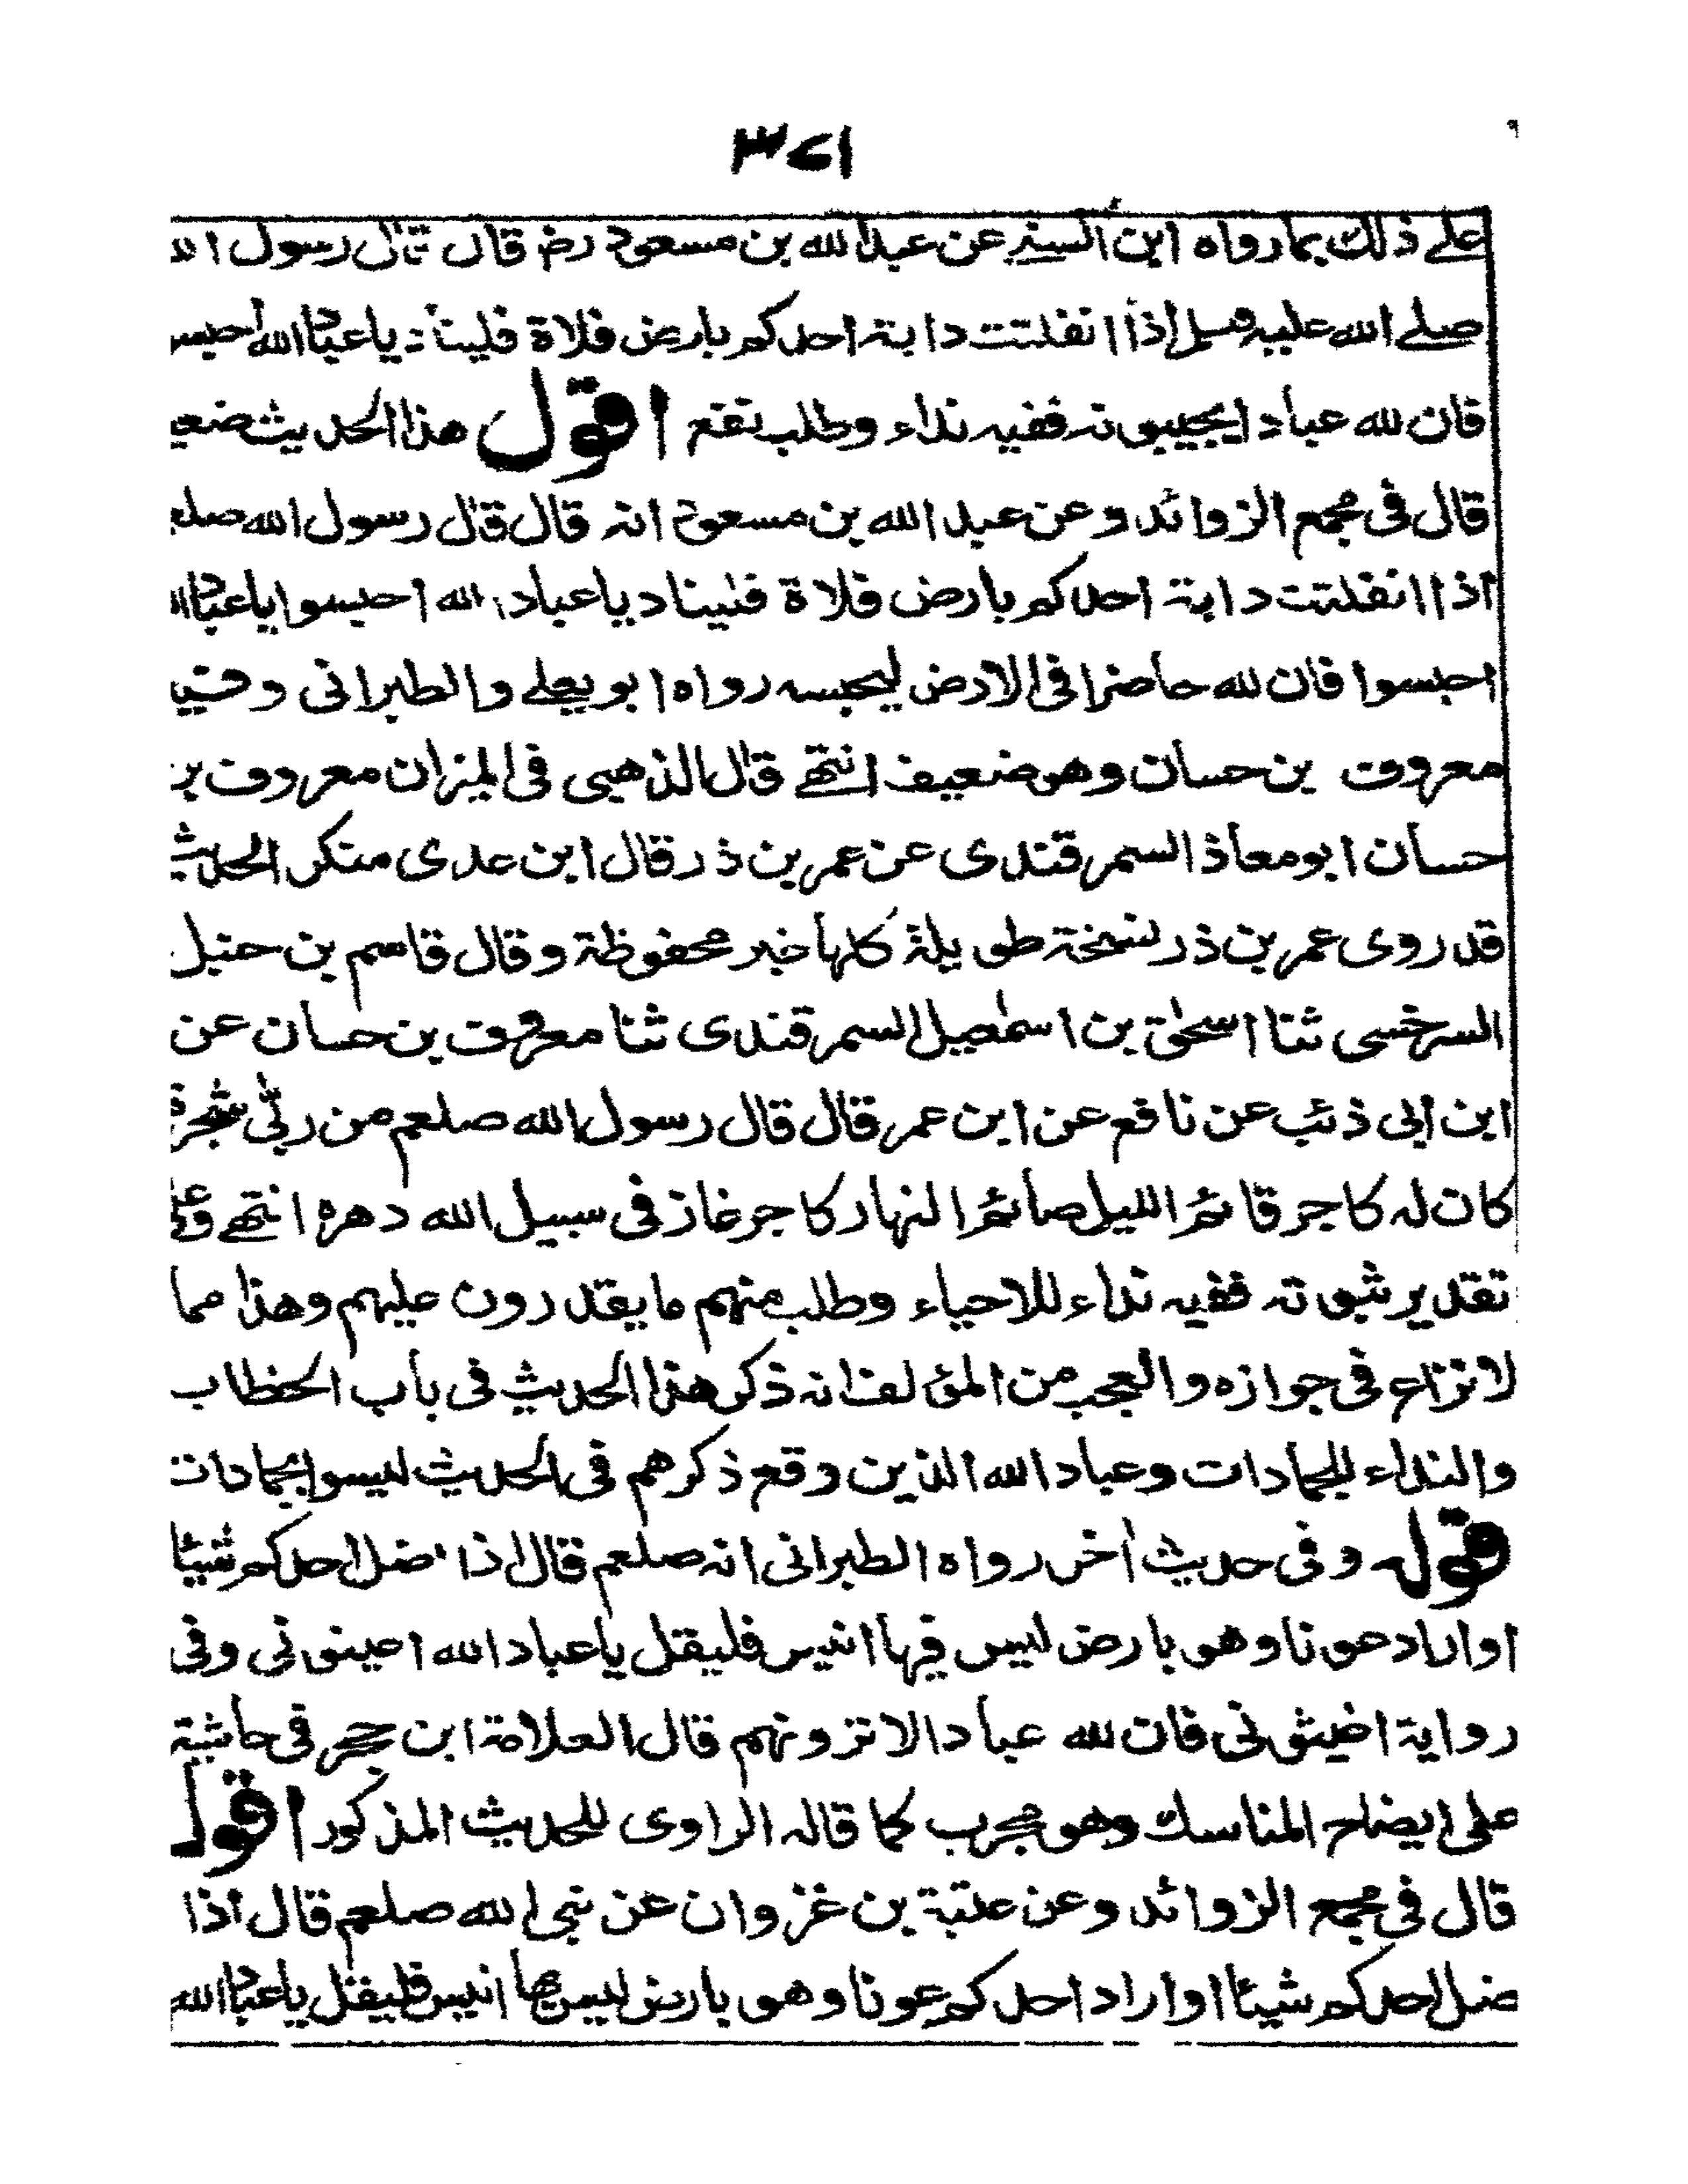 ٣٧١
على ذلك بما رواه ابن السني عن عبد الله بن مسعود رض قال قال رسول الله
صلى الله عليه وسلم اذا انفلتت دابة احدكم بارض فلاة فليناد يا عباد الله احبسوا
فان لله عبادا يجيبونه ففيه نداء وطلب نفع اقول هذا الحديث ضعيف
قال فى مجمع الزوائد وعن عبد الله بن مسعود انه قال قال رسول الله صلعم
اذا انفلتت دابة احدكم بارض فلاة فليناد يا عباد الله احبسوا يا عباد الله
احبسوا فان لله حاضرا فى الارض ليحبسه رواه ابو يعلى والطبرانى وفيه
معروف بن حسان وهو ضعيف انتهى قال الذهبى فى الميزان معروف بن
حسان ابو معاذ السمرقندى عن عمر بن ذر قال ابن عدى منكر الحديث
قد روى عمر بن ذر نسخة طويلة كلها غير محفوظة وقال قاسم بن حنبل
السرخسى ثنا اسحق بن اسمعيل السمرقندى ثنا معروف بن حسان عن
ابن ابى ذئب عن نافع عن ابن عمر قال قال رسول الله صلعم من ربّى شجرة
كان له كاجر قائم الليل صائم النهار كاجر غاز فى سبيل الله دهره انتهى وعلى
تقدير ثبوته ففيه نداء للاحياء وطلب منهم ما يقدرون عليهم وهذا مما
لا نزاع فى جوازه والعجب من المؤلف انه ذكر هذا الحديث فى باب الخطاب
والنداء للجمادات وعباد الله الذين وقع ذكرهم فى الحديث ليسوا بجمادات
قوله وفى حديث آخر رواه الطبرانى انه صلعم قال اذا اضل احدكم شيئا
او اراد عونا وهو بارض ليس فيها انيس فليقل يا عباد الله اعينونى وفى
رواية اغيثونى فان لله عبادا لا ترونهم قال العلامة ابن حجر فى حاشية
على ايضاح المناسك وهو مجرب كما قاله الراوى للحديث المذكور اقول
قال فى مجمع الزوائد وعن عتبة بن غزوان عن نبى الله صلعم قال اذا
ضل احدكم شيئا او اراد احدكم عونا وهو بارض ليس بها انيس فليقل يا عباد الله